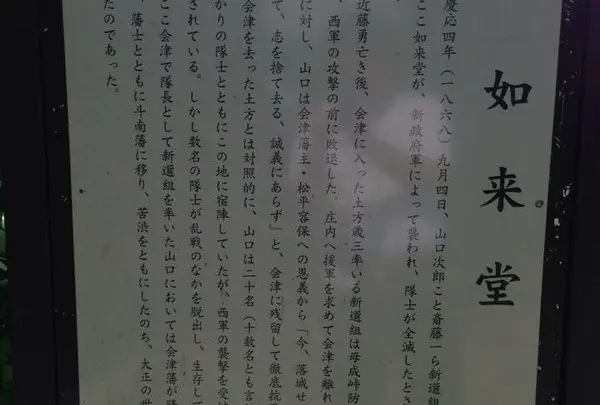 如来堂
慶応四年（一八六八）九月四日、山口次郎こと斎藤一ら新選組
ここ如来堂が、新政府軍によって襲われ、隊士が全滅したとき
近藤勇亡き後、会津に入った土方歳三率いる新選組は母成峠防
、西軍の攻撃の前に敗退した。庄内へ援軍を求めて会津を離れ
に対し、山口は会津藩主・松平容保への恩義から「今、落城せ
て、志を捨て去る、誠義にあらず」と、会津に残留して徹底抗
会津を去った土方とは対照的に、山口は二十名（十数名とも言
かりの隊士とともにこの地に宿陣していたが、西軍の襲撃を受
されている。しかし数名の隊士が乱戦のなかを脱出し、生存して
ここ会津で隊長として新選組を率いた山口においては会津藩が
、藩士とともに斗南藩に移り、苦渋をともにしたのち、大正の世
たのであった。